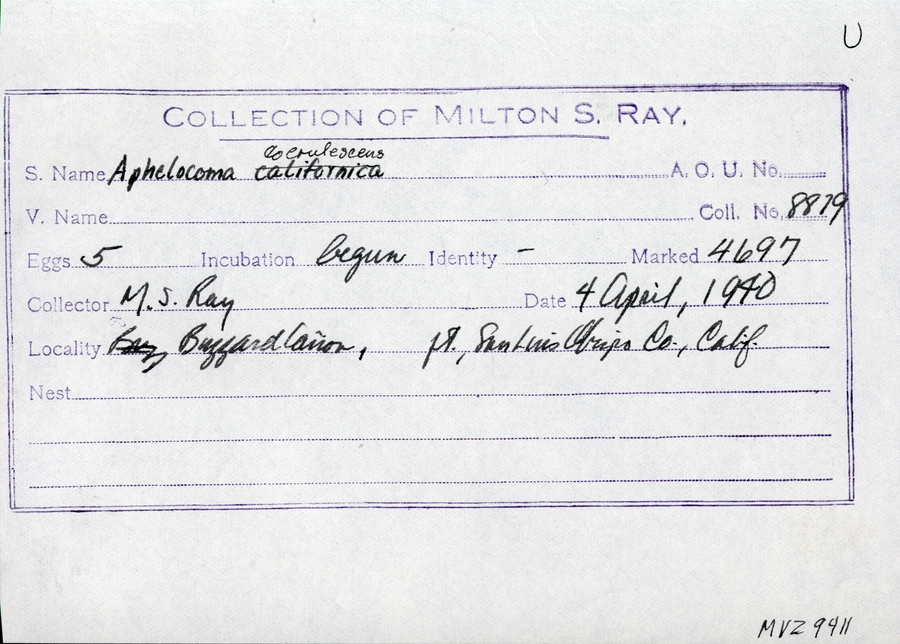 U
COLLECTION OF MILTON S. RAY.
coerulescens
S. Name Aphelocoma californica A. O. U. No.
V. Name Coll. No. 8879
Eggs 5 Incubation begun Identity – Marked 4697
Collector M. S. Ray Date 4 April, 1940
Locality Buz Buzzard Cañon, ft., San Luis Obispo Co., Calif.
Nest
MVZ 9411